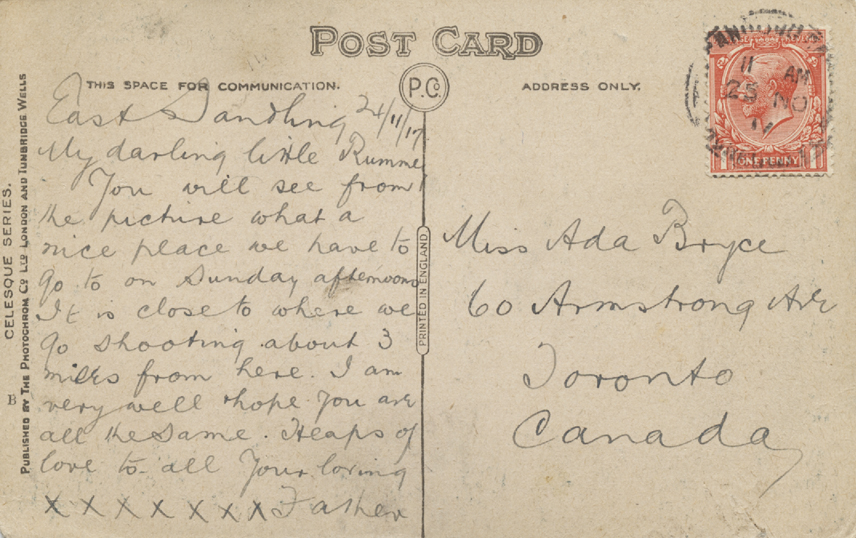 POST CARD
THIS SPACE FOR COMMUNICATION.
P.C.
ADDRESS ONLY.
East Sandling 24/11/17
My darling little Rumme
You will see from
the picture what a
nice place we have to
go to on Sunday afternoons
It is close to where we
go shooting about 3
miles from here. I am
very well & hope you are
all the same. Heaps of
love to all Your loving
x x x x x x x Father
Miss Ada Bryce
60 Armstrong Ave
Toronto
Canada
PRINTED IN ENGLAND
CELESQUE SERIES.
PUBLISHED BY THE PHOTOCHROM CO LTD LONDON AND TUNBRIDGE WELLS
B
11 AM
25 NO
17
ONE PENNY